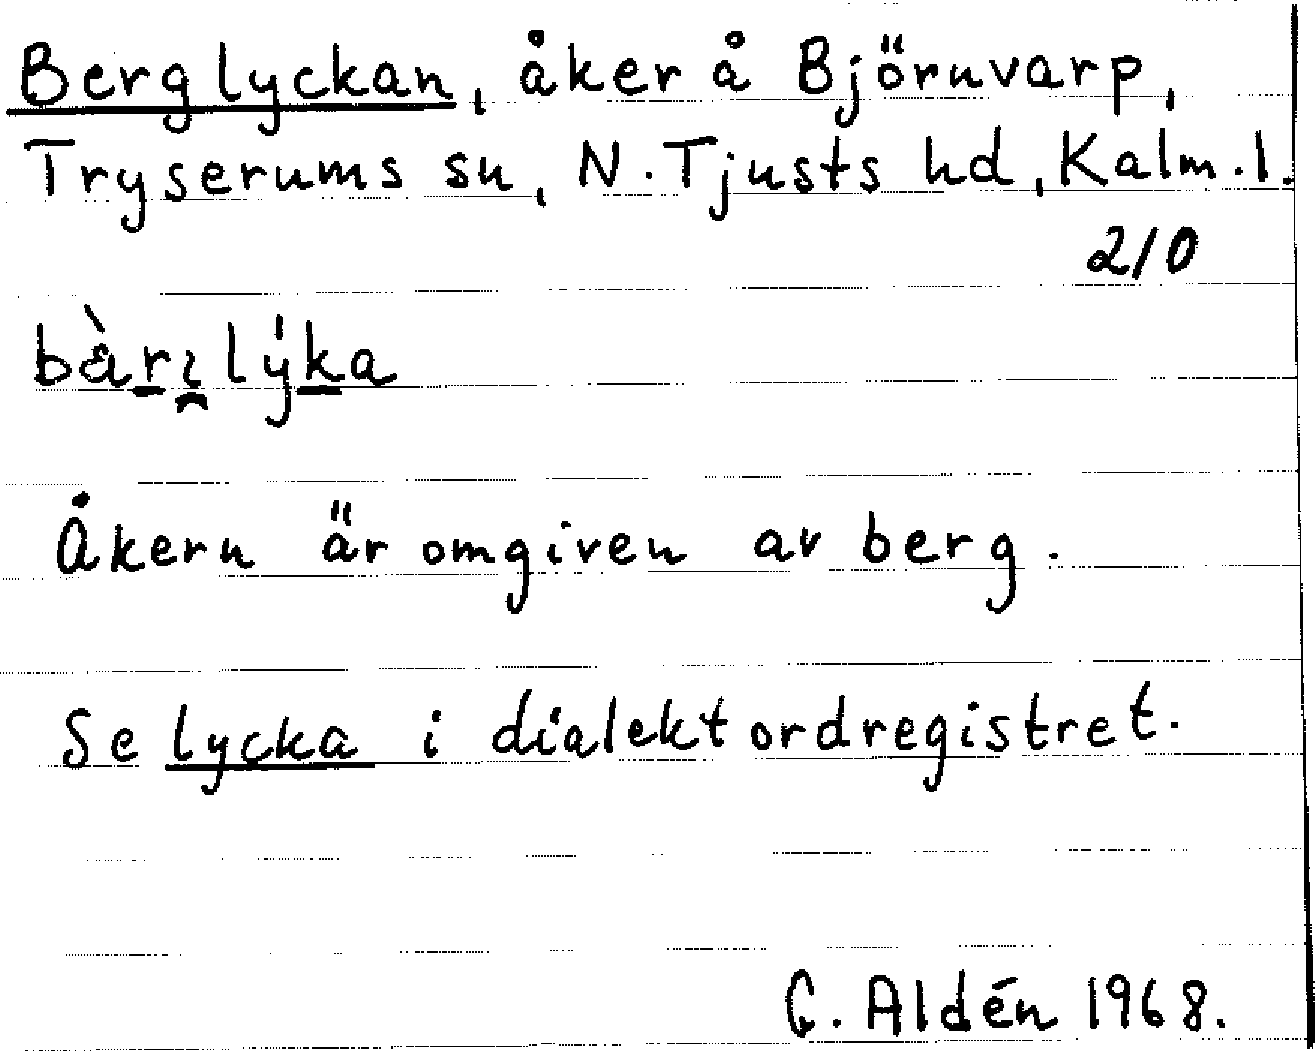 Berglyckan, åker å Björnvarp,
Tryserums sn, N. Tjusts hd, Kalm. l.
2/0
Åkern är omgiven av berg.
Se lycka i dialektordregistret.
G. Aldén 1968.